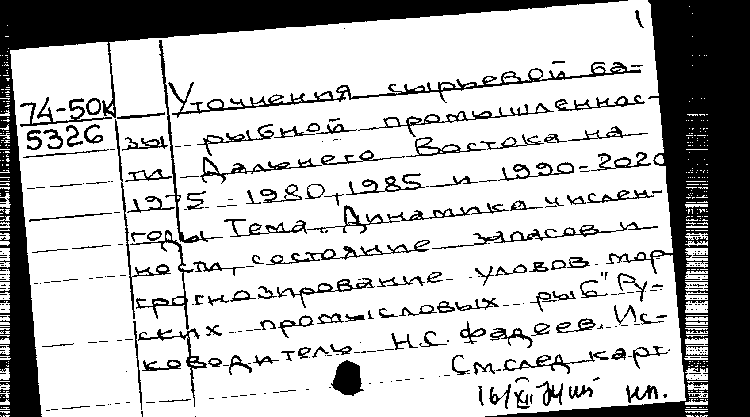 1
74-50к
5326
Уточнения сырьевой ба-
зы рыбной промышленнос-
ти Дальнего Востока на
1975-1980, 1985 и 1990-2020
годы Тема. Динамика числен-
ности, состояние запасов и
прогнозирование уловов мор
ских промысловых рыб" Ру-
ководитель Н.С. Фадеев. Ис-
См. след карт
16/XII 74